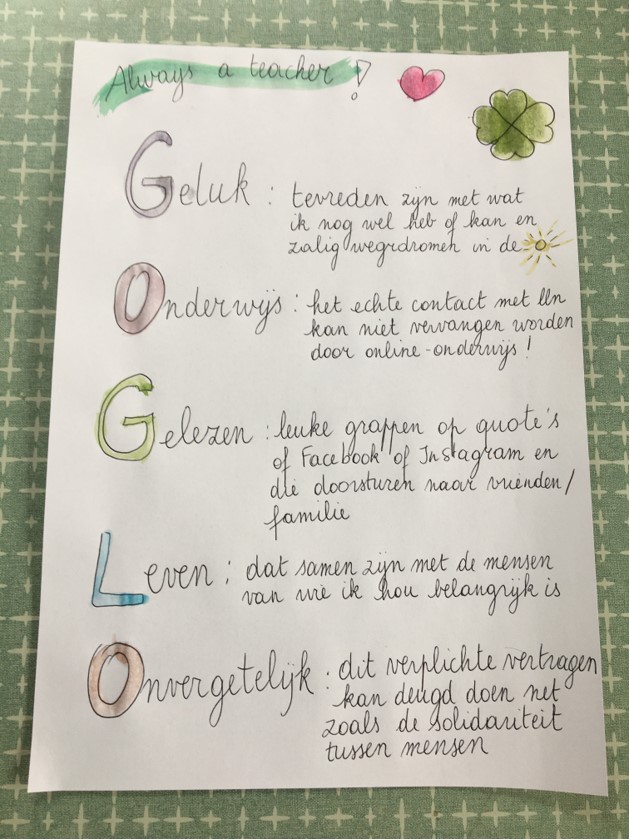 Always a teacher!
Geluk : tevreden zijn met wat
ik nog wel heb of kan en
zalig wegdromen in de
Onderwijs : het echte contact met lln
kan niet vervangen worden
door online-onderwijs!
Gelezen : leuke grappen op quote's
of Facebook of Instagram en
die doorsturen naar vrienden/
familie
Leven : dat samen zijn met de mensen
van wie ik hou belangrijk is
Onvergetelijk : dit verplichte vertragen
kan deugd doen net
zoals de solidariteit
tussen mensen